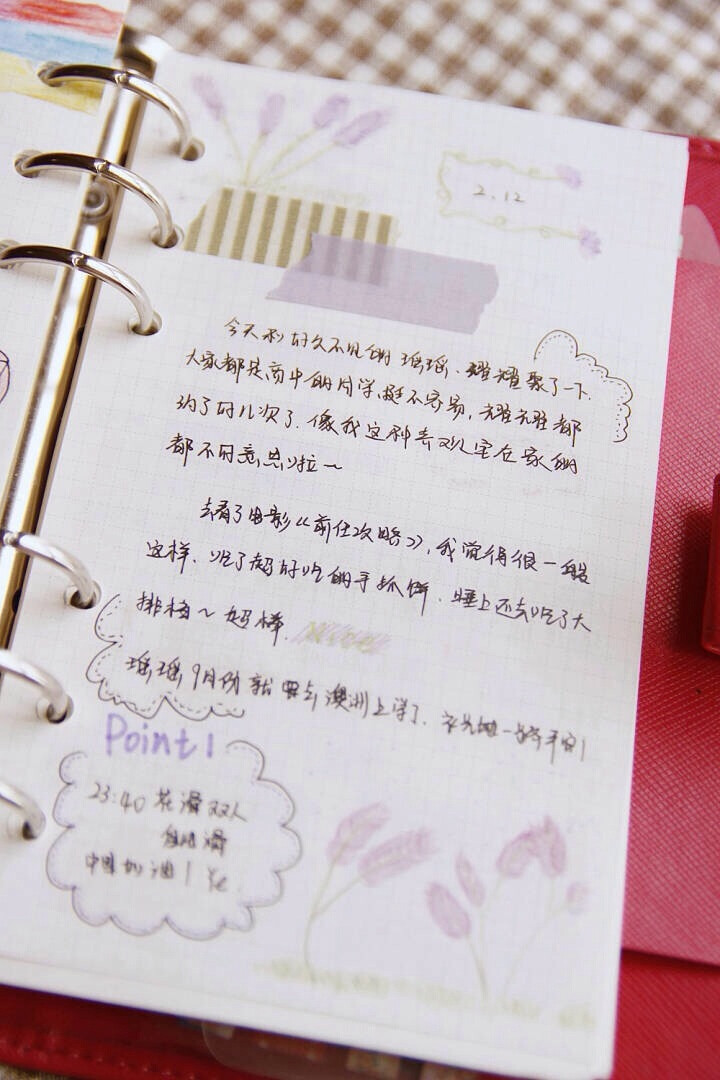 2.12
今天和好久不见的瑶瑶、耀耀聚了一下.
大家都是高中的同学,挺不容易,耀耀都
约了好几次了.像我这种喜欢宅在家的
都不好意思啦~
去看了电影《前任攻略》,我觉得很一般
这样.吃了超好吃的手抓饼.晚上还去吃了大
排档~好棒.
瑶瑶9月份就要去澳洲上学了.祝她一路平安!
Point 1
23:40 花滑双人
自由滑
中国加油!Ye.